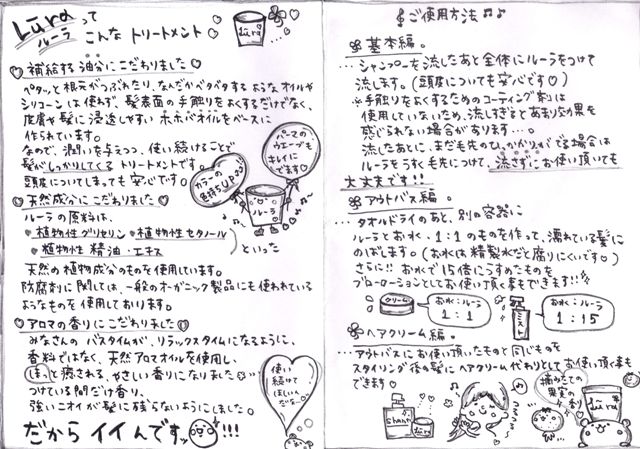 Lūraって
ルーラ
こんなトリートメント
lūra
♡補給する油分にこだわりました♡
ペタッと根元がつぶれたり、なんだかベタベタするようなオイルや
シリコーンは使わず、髪表面の手触りをよくするだけでなく、
皮膚や髪に浸透しやすいホホバオイルをベースに
作られています。
なので、潤いを与えつつ、使い続けることで
髪がしっかりしてくるトリートメントです。
頭皮についてしまっても安心です。
パーマの
ウエーブも
キレイに
でます♡
カラーの
色持ちUP
ルーラ
♡天然成分にこだわりました♡
ルーラの原料は、
植物性グリセリン 植物性セタノール
植物性精油・エキス
といった
天然の植物成分のものを使用しています。
防腐剤に関しては、一般のオーガニック製品にも使われている
ようなものを使用しております。
♡アロマの香りにこだわりました♡
みなさんのバスタイムが、リラックスタイムになるように、
香料ではなく、天然アロマオイルを使用し、
ほっと癒される、やさしい香りになりました
つけている間だけ香り、
強いニオイが髪に残らないようにしました。
だからイイんですッ!!!
使い
続けて
ほしいん
だな〜
ご使用方法♪♪
基本編。
…シャンプーを流したあと全体にルーラをつけて
流します。(頭皮についても安心です♡)
※手触りをよくするためのコーティング剤は
使用していないため、流しすぎるとあまり効果を
感じられない場合があります…。
流したあとに、まだ毛先のひっかかりがでる場合は
ルーラをうすく毛先につけて、流さずにお使い頂いても
大丈夫です!!
アウトバス編。
…タオルドライのあと、別の容器に
ルーラとお水、1:1のものを作って、濡れている髪に
のばします。(お水は精製水だと腐りにくいです♡)
さらに!!お水で15倍にうすめたものを
ブローローションとしてお使い頂く事もできます!!
クリーム
お水:ルーラ
1:1
ミスト
お水:ルーラ
1:15
ヘアクリーム編。
…アウトバスにお使い頂いたものと同じものを
スタイリング後の髪にヘアクリーム代わりとしてお使い頂く事も
できます♡
摘みたての
果実の
香り
sham
lūra
lūra